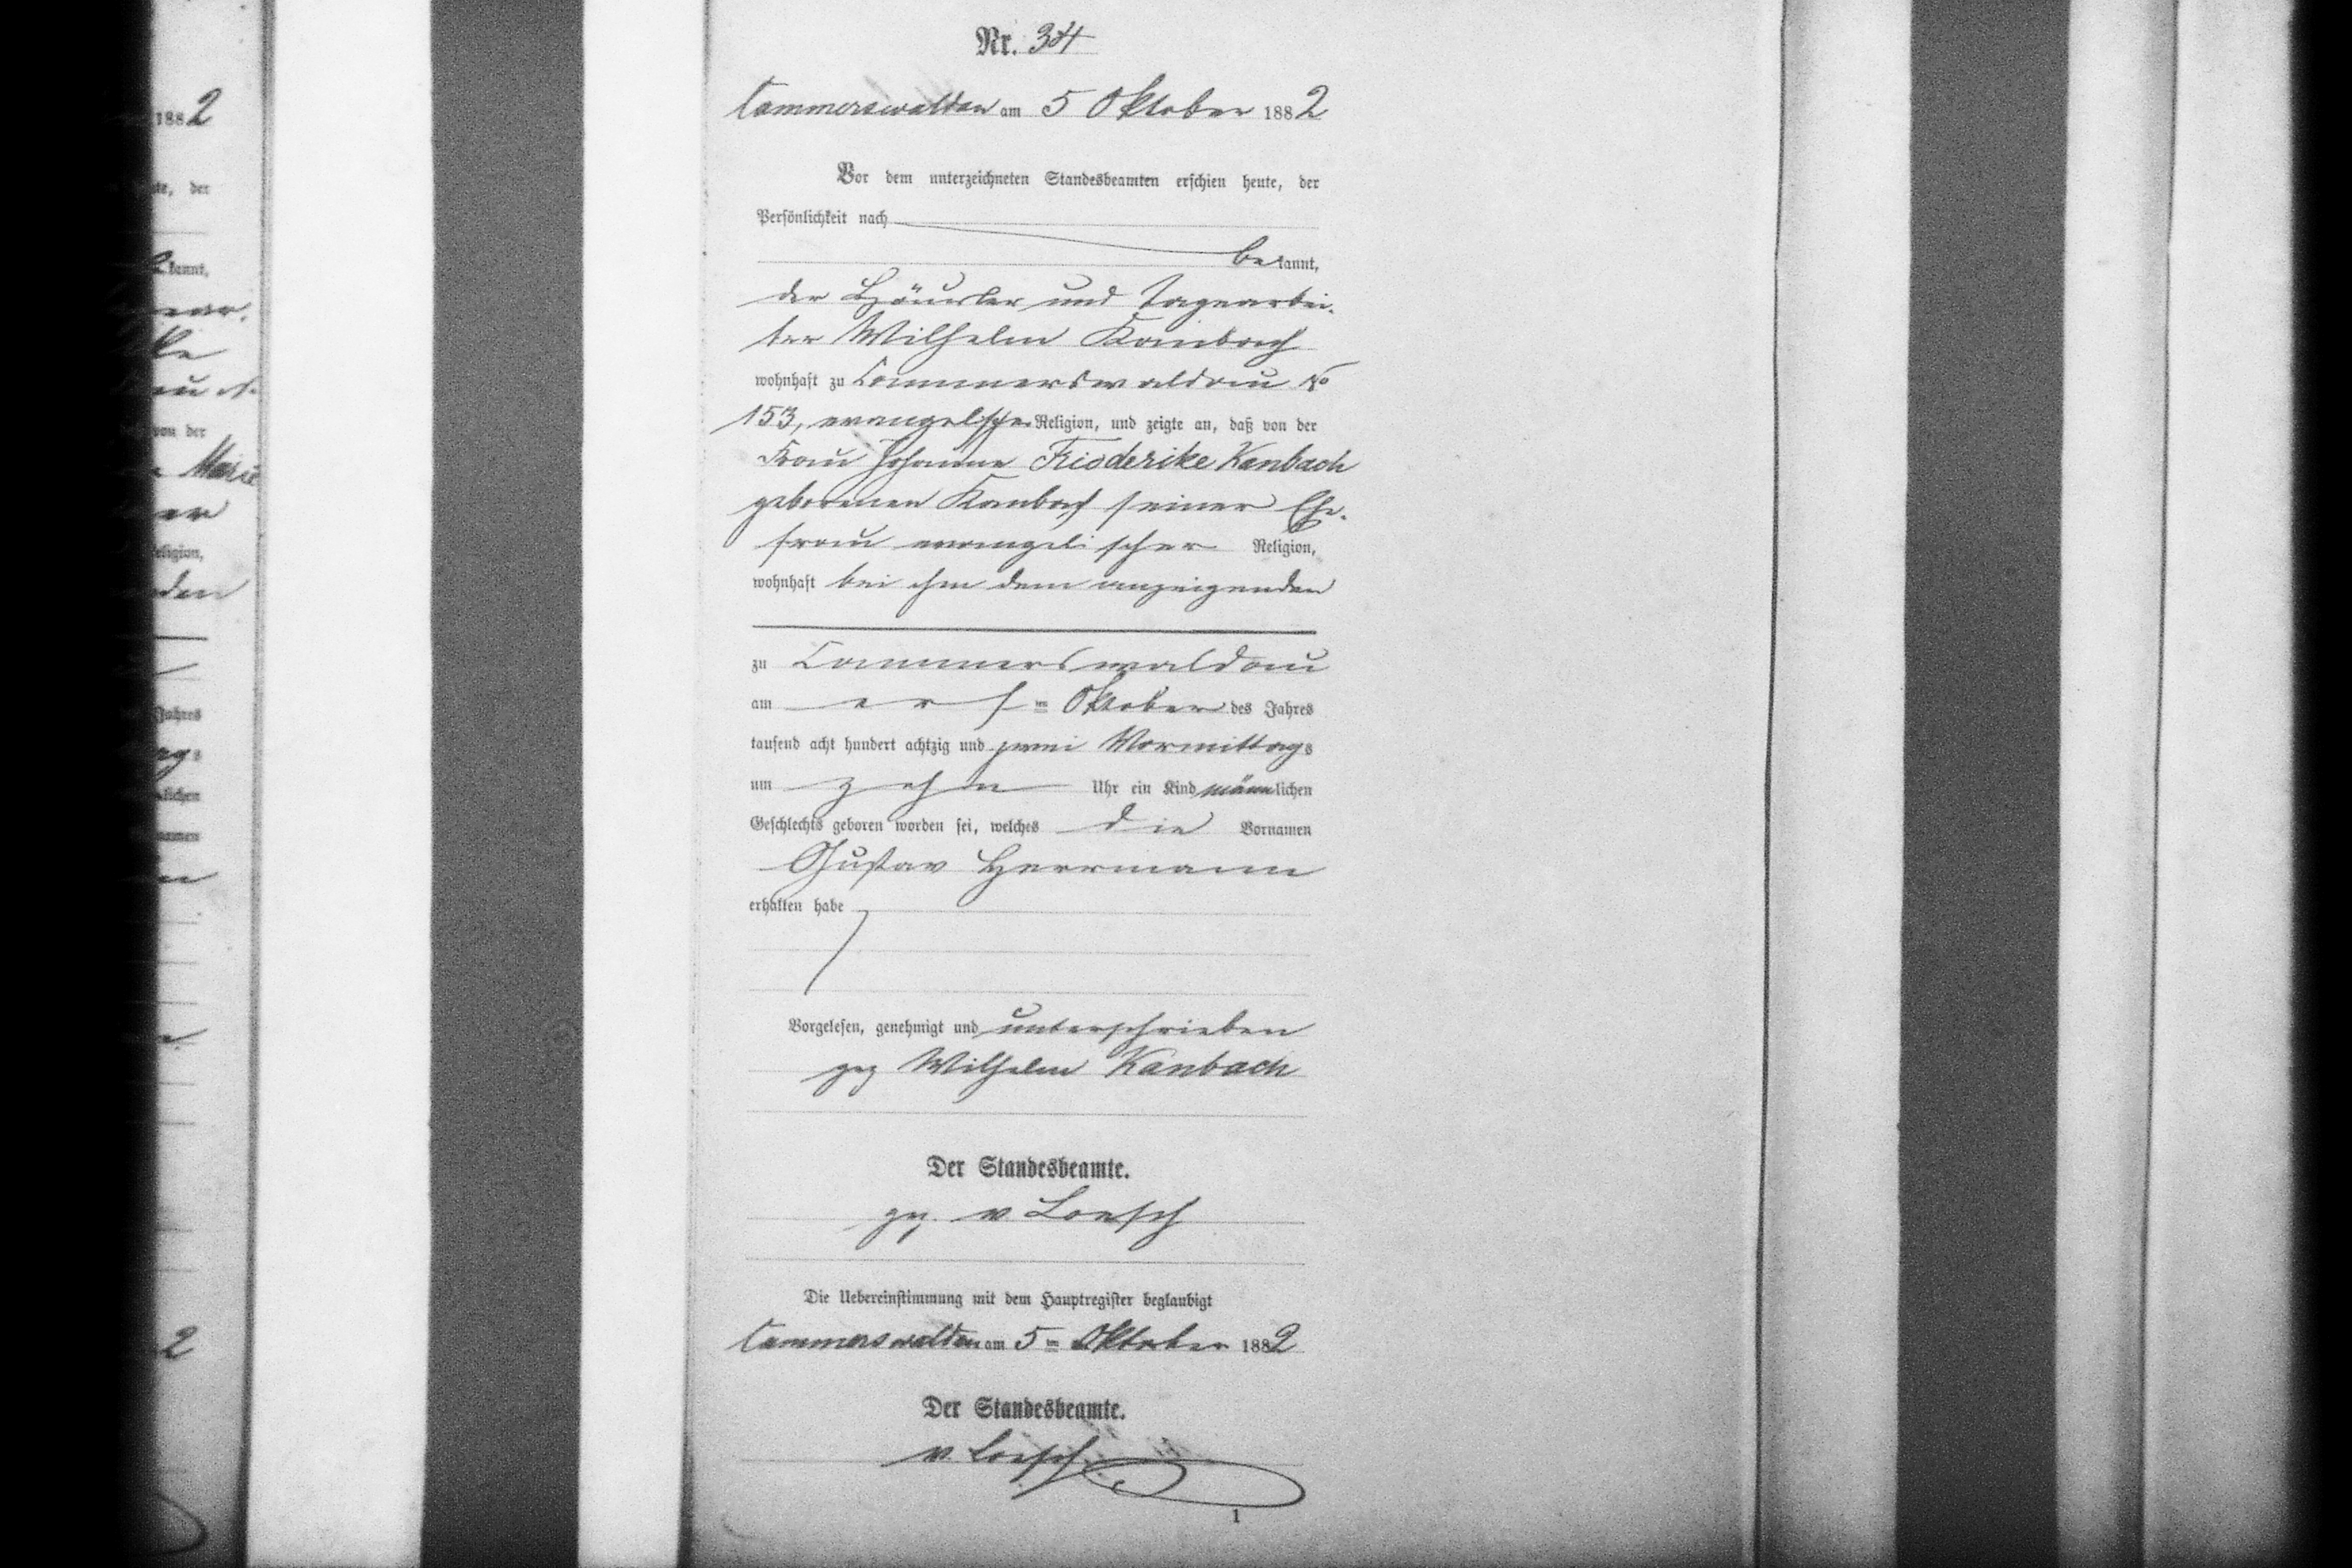 Nr. 34
Cammerswaldau am 5 Oktober 1882
Vor dem unterzeichneten Standesbeamten erschien heute, der
Persönlichkeit nach
bekannt,
der Häusler und Tagearbei-
ter Wilhelm Kanbach
wohnhaft zu Cammerswaldau No
153, evangelischer Religion, und zeigte an, daß von der
Frau Johanne Friederike Kanbach
geborenen Kanbach seiner Ehe-
frau evangelischer Religion,
wohnhaft bei ihm dem anzeigenden
zu Cammerswaldau
am ersten Oktober des Jahres
tausend acht hundert achtzig und zwei Vormittags
um zehn Uhr ein Kind männlichen
Geschlechts geboren worden sei, welches die Vornamen
Gustav Herrmann
erhalten habe
Vorgelesen, genehmigt und unterschrieben
gez Wilhelm Kanbach
Der Standesbeamte.
gez. v Loesch
Die Uebereinstimmung mit dem Hauptregister beglaubigt
Cammerswaldau am 5ten Oktober 1882
Der Standesbeamte.
v. Loesch
1